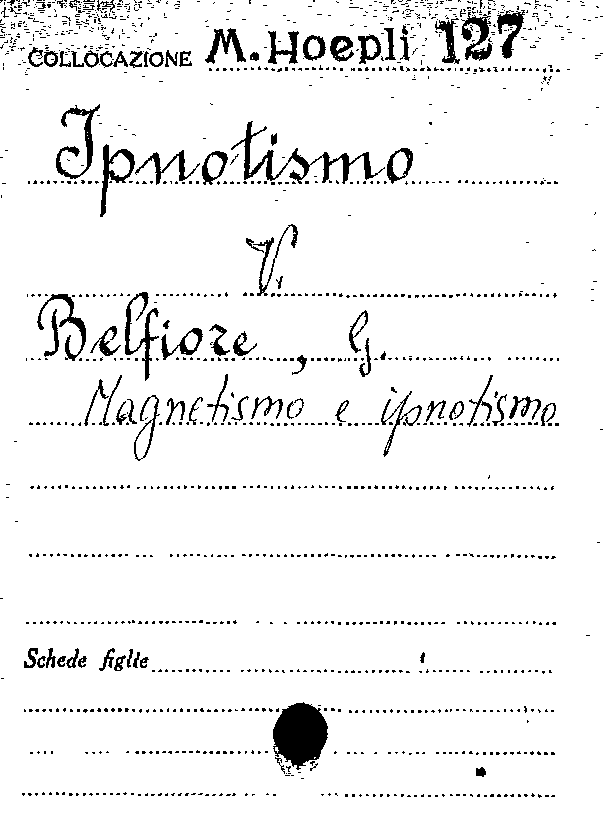 COLLOCAZIONE M. Hoepli 127
Ipnotismo
V.
Belfiore, G.
Magnetismo e ipnotismo
Schede figlie